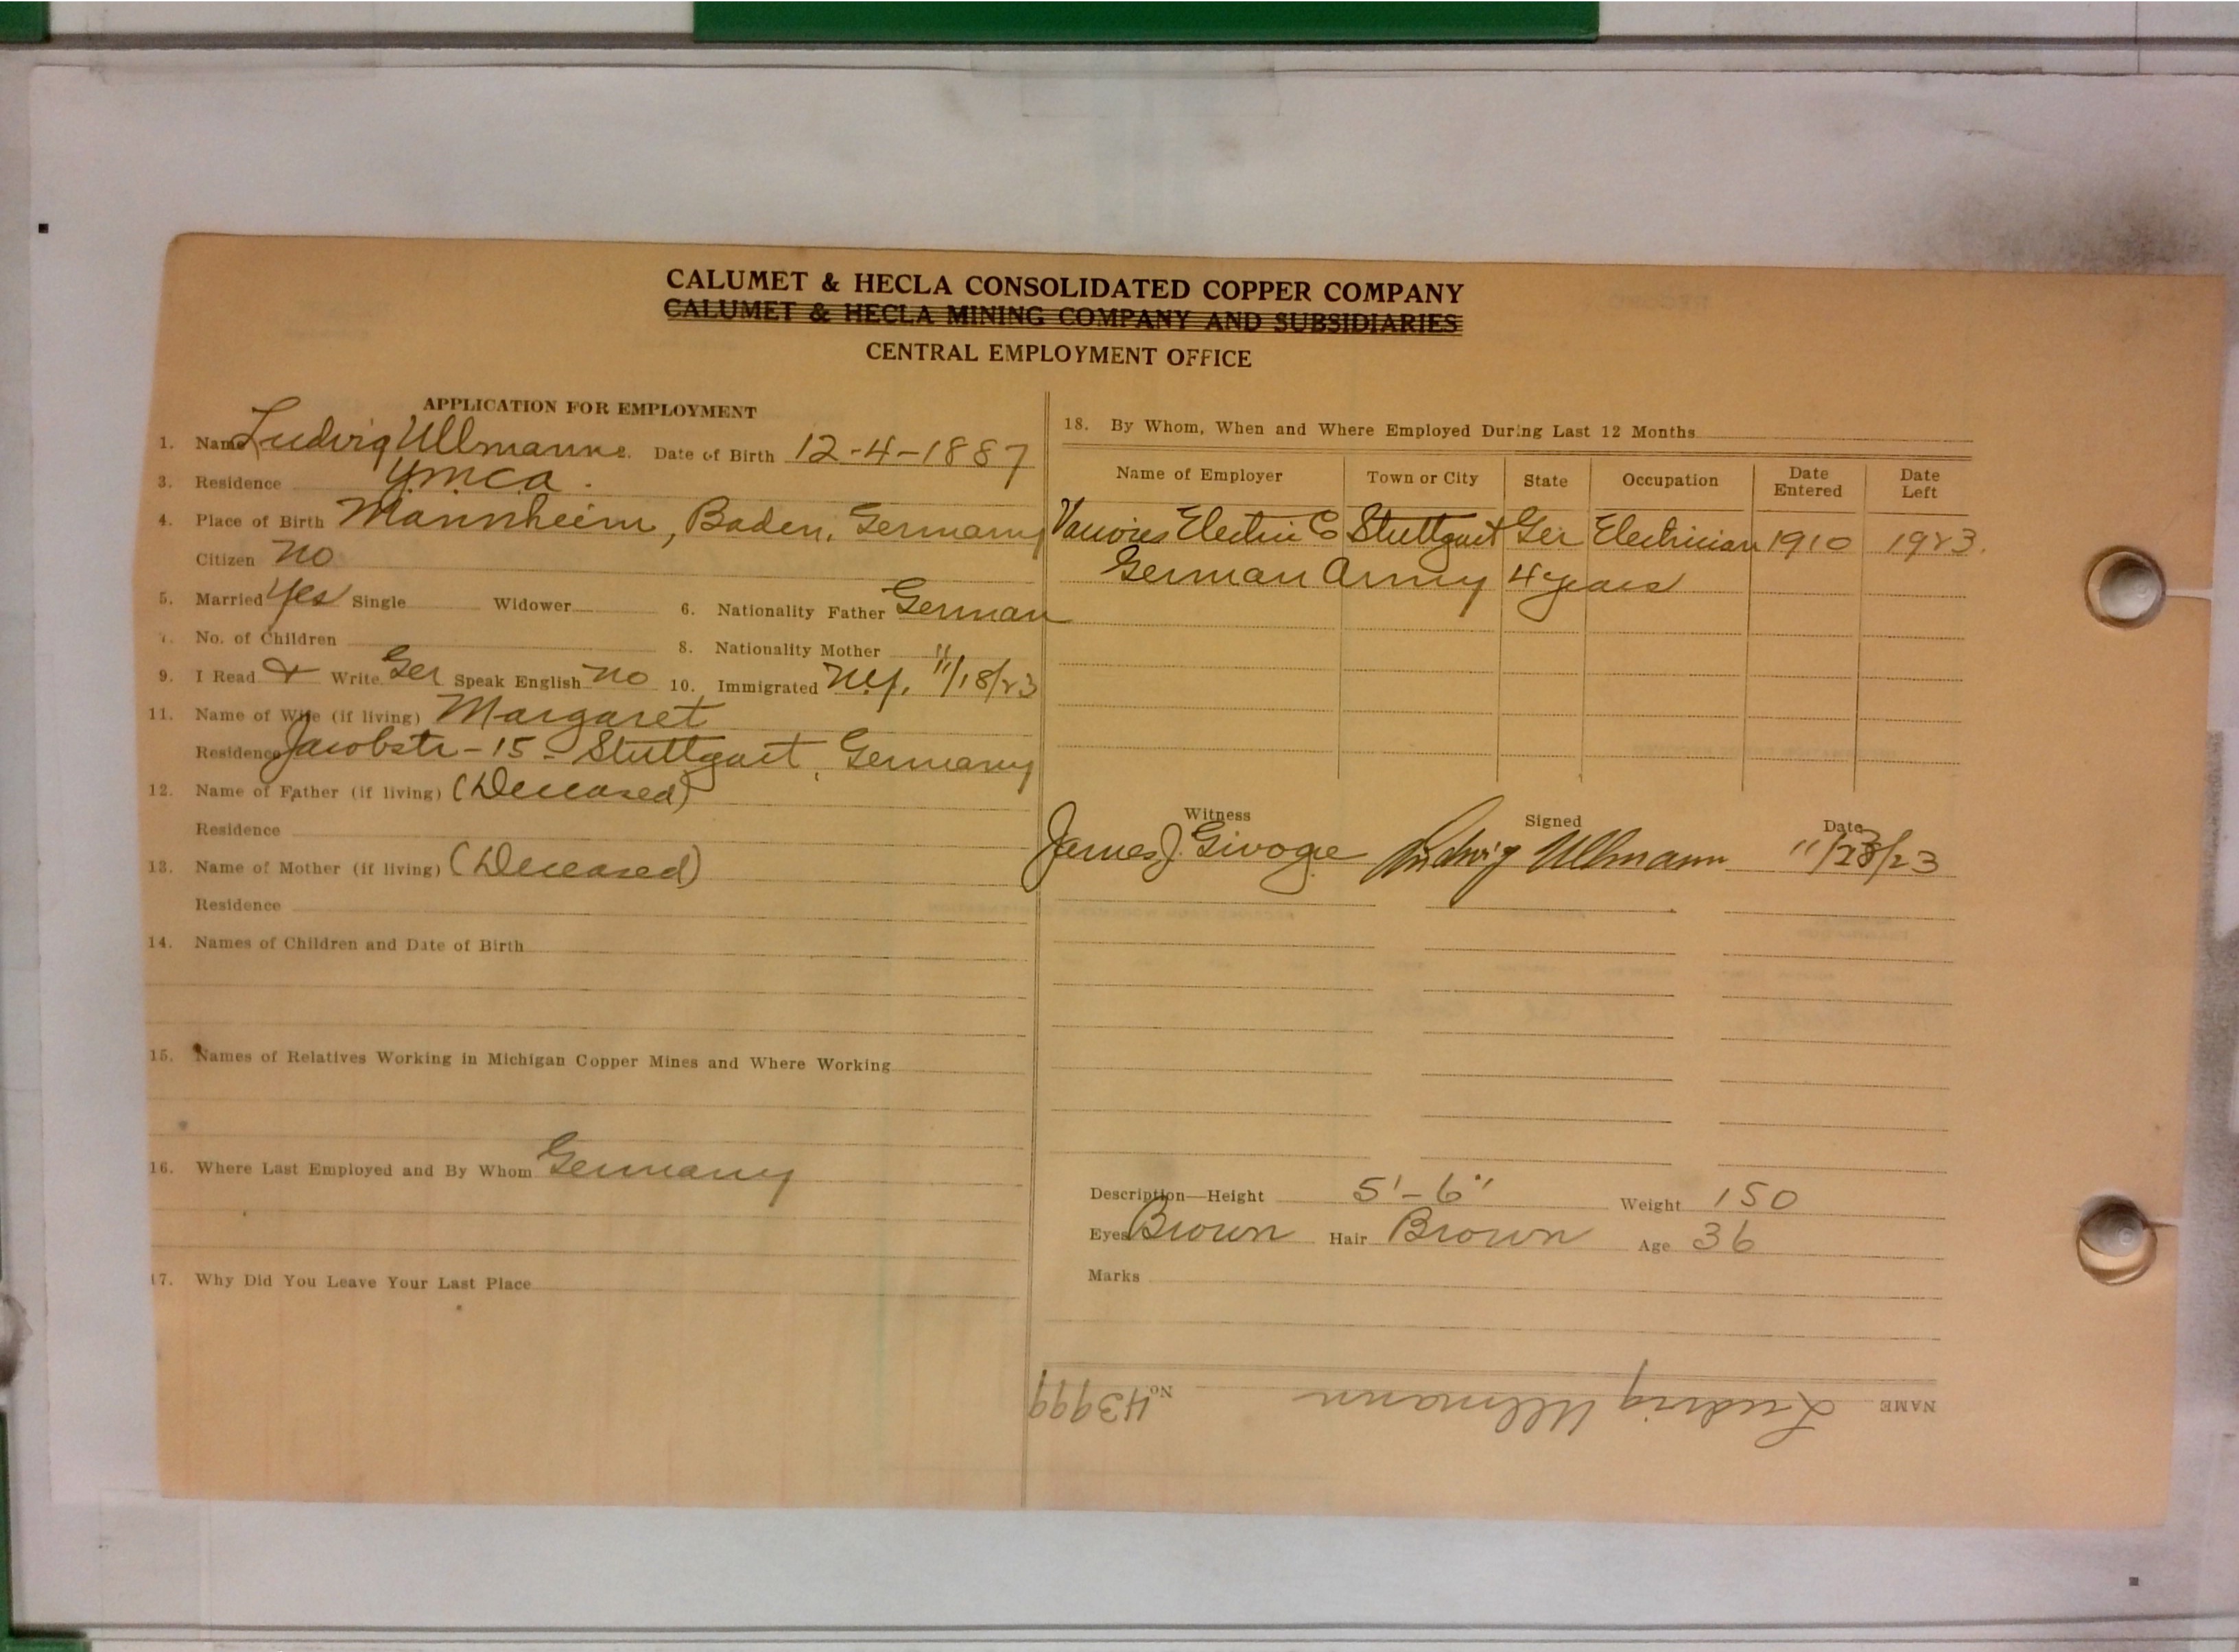 CALUMET & HECLA CONSOLIDATED COPPER COMPANY
CALUMET & HECLA MINING COMPANY AND SUBSIDIARIES
CENTRAL EMPLOYMENT OFFICE
APPLICATION FOR EMPLOYMENT
1. Name Ludwig Ullmann Date of Birth 12-4-1887
3. Residence Y.M.C.A.
4. Place of Birth Mannheim, Baden, Germany
Citizen No
5. Married Yes Single Widower 6. Nationality Father German
7. No. of Children 8. Nationality Mother "
9. I Read & Write Ger Speak English No 10. Immigrated N.Y. 11/18/23
11. Name of Wife (if living) Margaret
Residence Jacobstr-15- Stuttgart, Germany
12. Name of Father (if living) (Deceased)
Residence
13. Name of Mother (if living) (Deceased)
Residence
14. Names of Children and Date of Birth
15. Names of Relatives Working in Michigan Copper Mines and Where Working
16. Where Last Employed and By Whom Germany
17. Why Did You Leave Your Last Place
18. By Whom, When and Where Employed During Last 12 Months
Name of Employer Town or City State Occupation Date Entered Date Left
Various Electric Co Stuttgart Ger Electrician 1910 1923.
German Army 4 years
Witness Signed Date
James J. Ludwig Ullmann 11/23
Description—Height 5'-6" Weight 150
Eyes Brown Hair Brown Age 36
Marks
NAME Ludwig Ullmann No. 43999